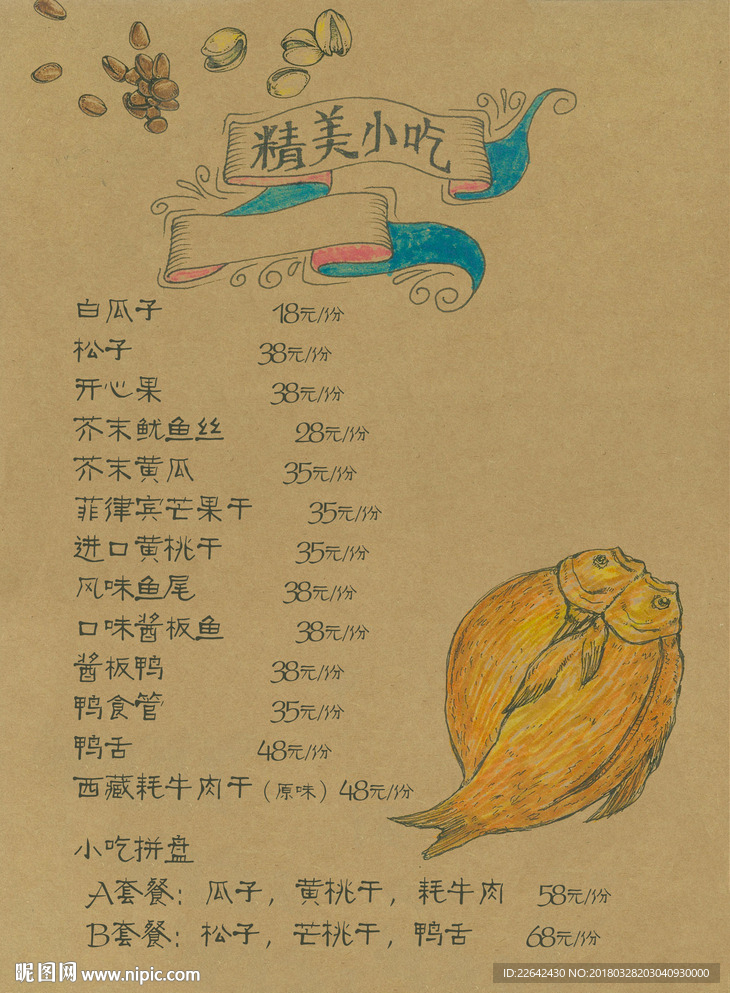 精美小吃
白瓜子 18元/份
松子 38元/份
开心果 38元/份
芥末鱿鱼丝 28元/份
芥末黄瓜 35元/份
菲律宾芒果干 35元/份
进口黄桃干 35元/份
风味鱼尾 38元/份
口味酱板鱼 38元/份
酱板鸭 38元/份
鸭食管 35元/份
鸭舌 48元/份
西藏耗牛肉干（原味）48元/份
小吃拼盘
A套餐：瓜子，黄桃干，耗牛肉 58元/份
B套餐：松子，芒桃干，鸭舌 68元/份
昵图网 www.nipic.com
ID:22642430 NO:20180328203040930000